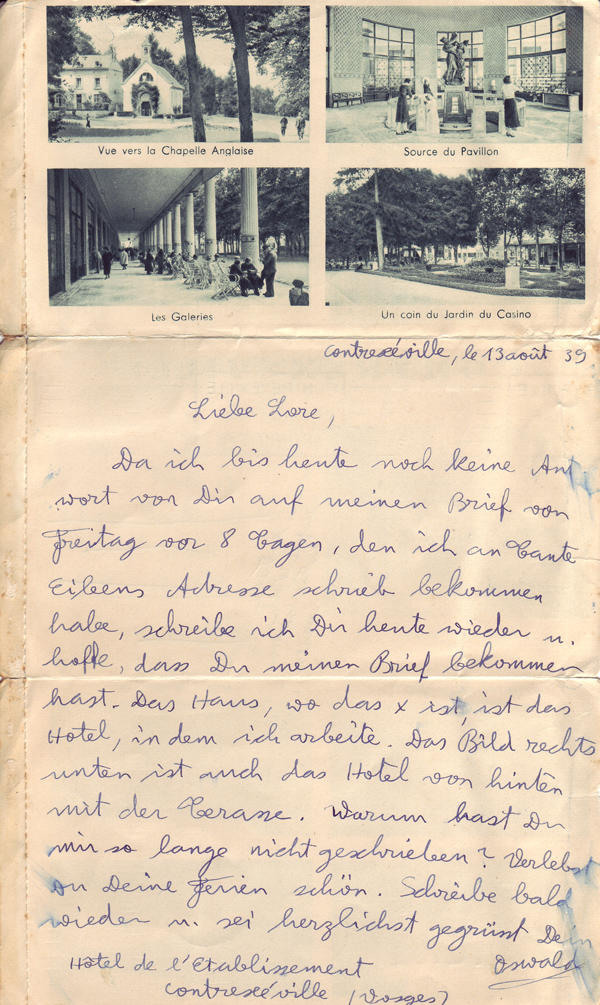 Vue vers la Chapelle Anglaise
Source du Pavillon
Les Galeries
Un coin du Jardin du Casino
Contrexéville, le 13 août 39
Liebe Lore,
Da ich bis heute noch keine Ant
wort von Dir auf meinen Brief von
Freitag vor 8 Tagen, den ich an Tante
Eibens Adresse schrieb bekommen
habe, schreibe ich Dir heute wieder u.
hoffe, dass Du meinen Brief bekommen
hast. Das Haus, wo das x ist, ist das
Hotel, in dem ich arbeite. Das Bild rechts
unten ist auch das Hotel von hinten
mit der Terasse. Warum hast Du
mir so lange nicht geschrieben? Verlebst
du Deine Ferien schön. Schreibe bald
wieder u. sei herzlichst gegrüsst Dein
Oswald
Hotel de l'Etablissement
Contrexéville (Vosges)